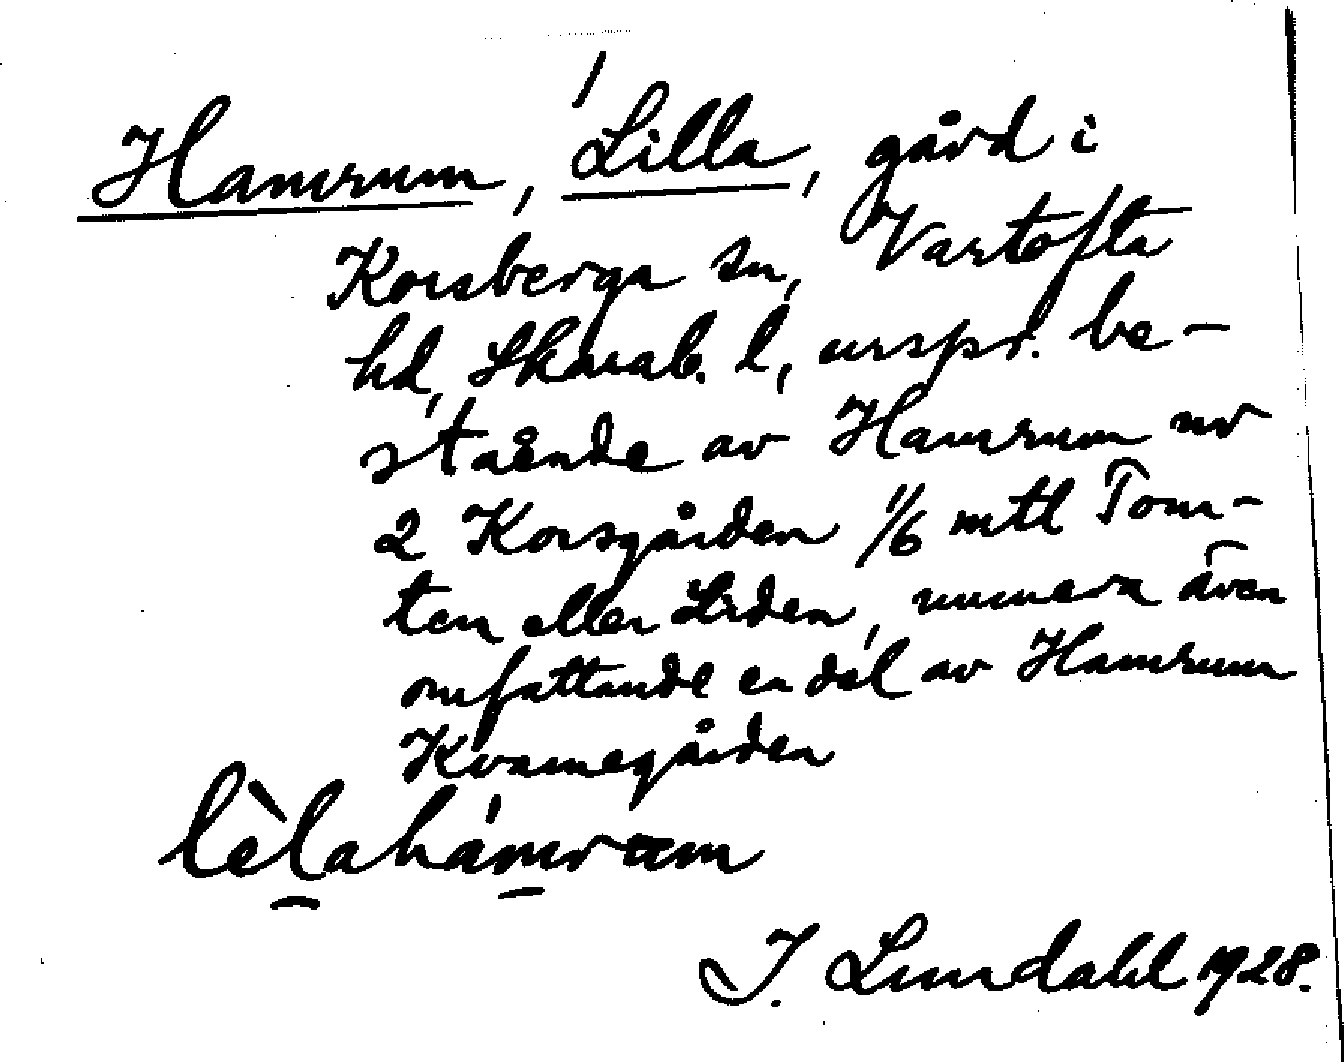 Hamrum, Lilla, gård i
Korsberga sn, Vartofta
hd, Skarab. l, urspr. be-
stående av Hamrum nr
2 Korsgården 1/6 mtl Tom-
ten eller Liden, numera även
omfattande en del av Hamrum
Kvarnegården
lèlahámrum
I. Lundahl 1928.